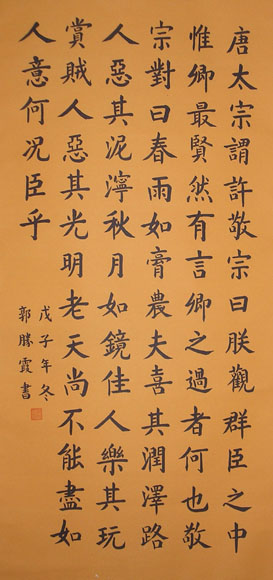 唐太宗謂許敬宗曰朕觀群臣之中
惟卿最賢然有言卿之過者何也敬
宗對曰春雨如膏農夫喜其潤澤路
人惡其泥濘秋月如鏡佳人樂其玩
賞賊人惡其光明老天尚不能盡如
人意何况臣乎
戊子年冬
郭勝霞書